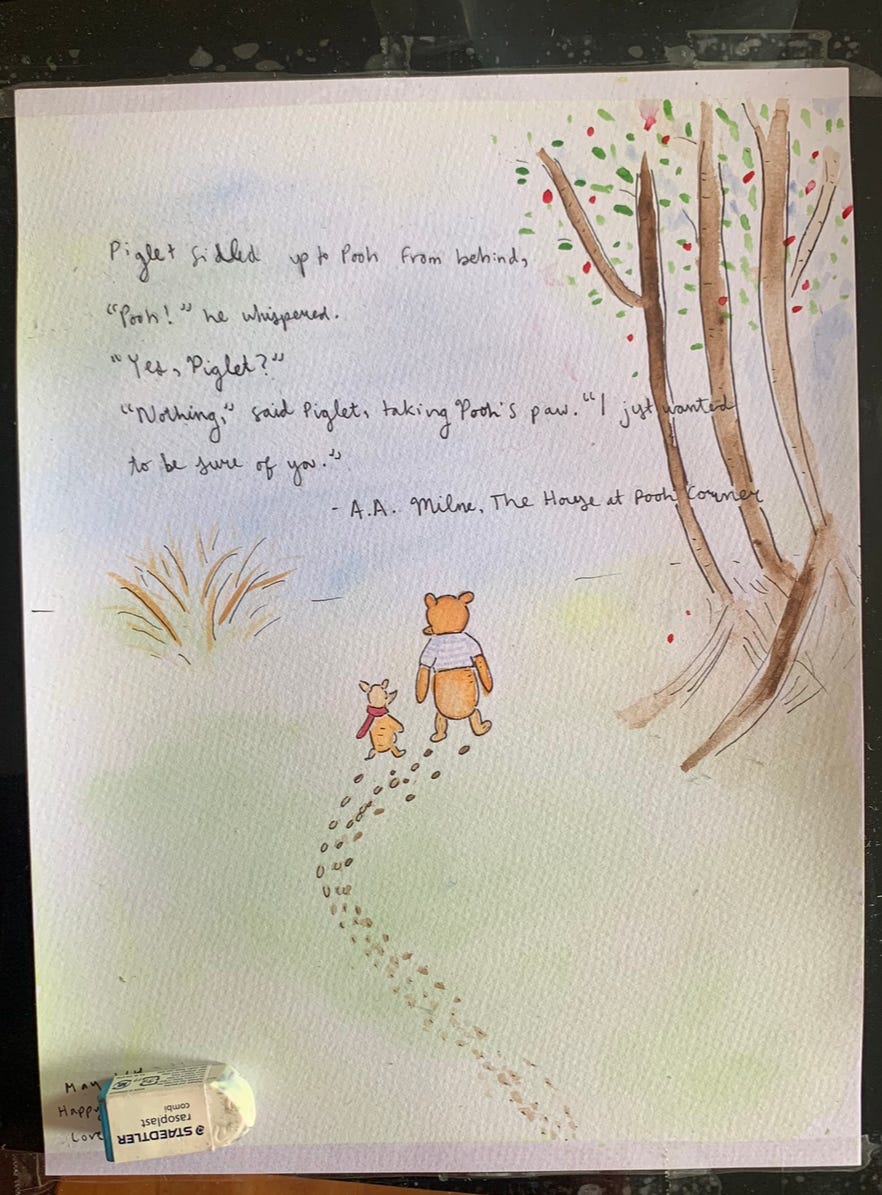 Piglet sidled up to Pooh from behind,
"Pooh!" he whispered.
"Yes, Piglet?"
"Nothing," said Piglet, taking Pooh's paw. "I just wanted
to be sure of you."
- A.A. Milne, The House at Pooh Corner
May
Happy
Love
STAEDTLER
rasoplast
combi